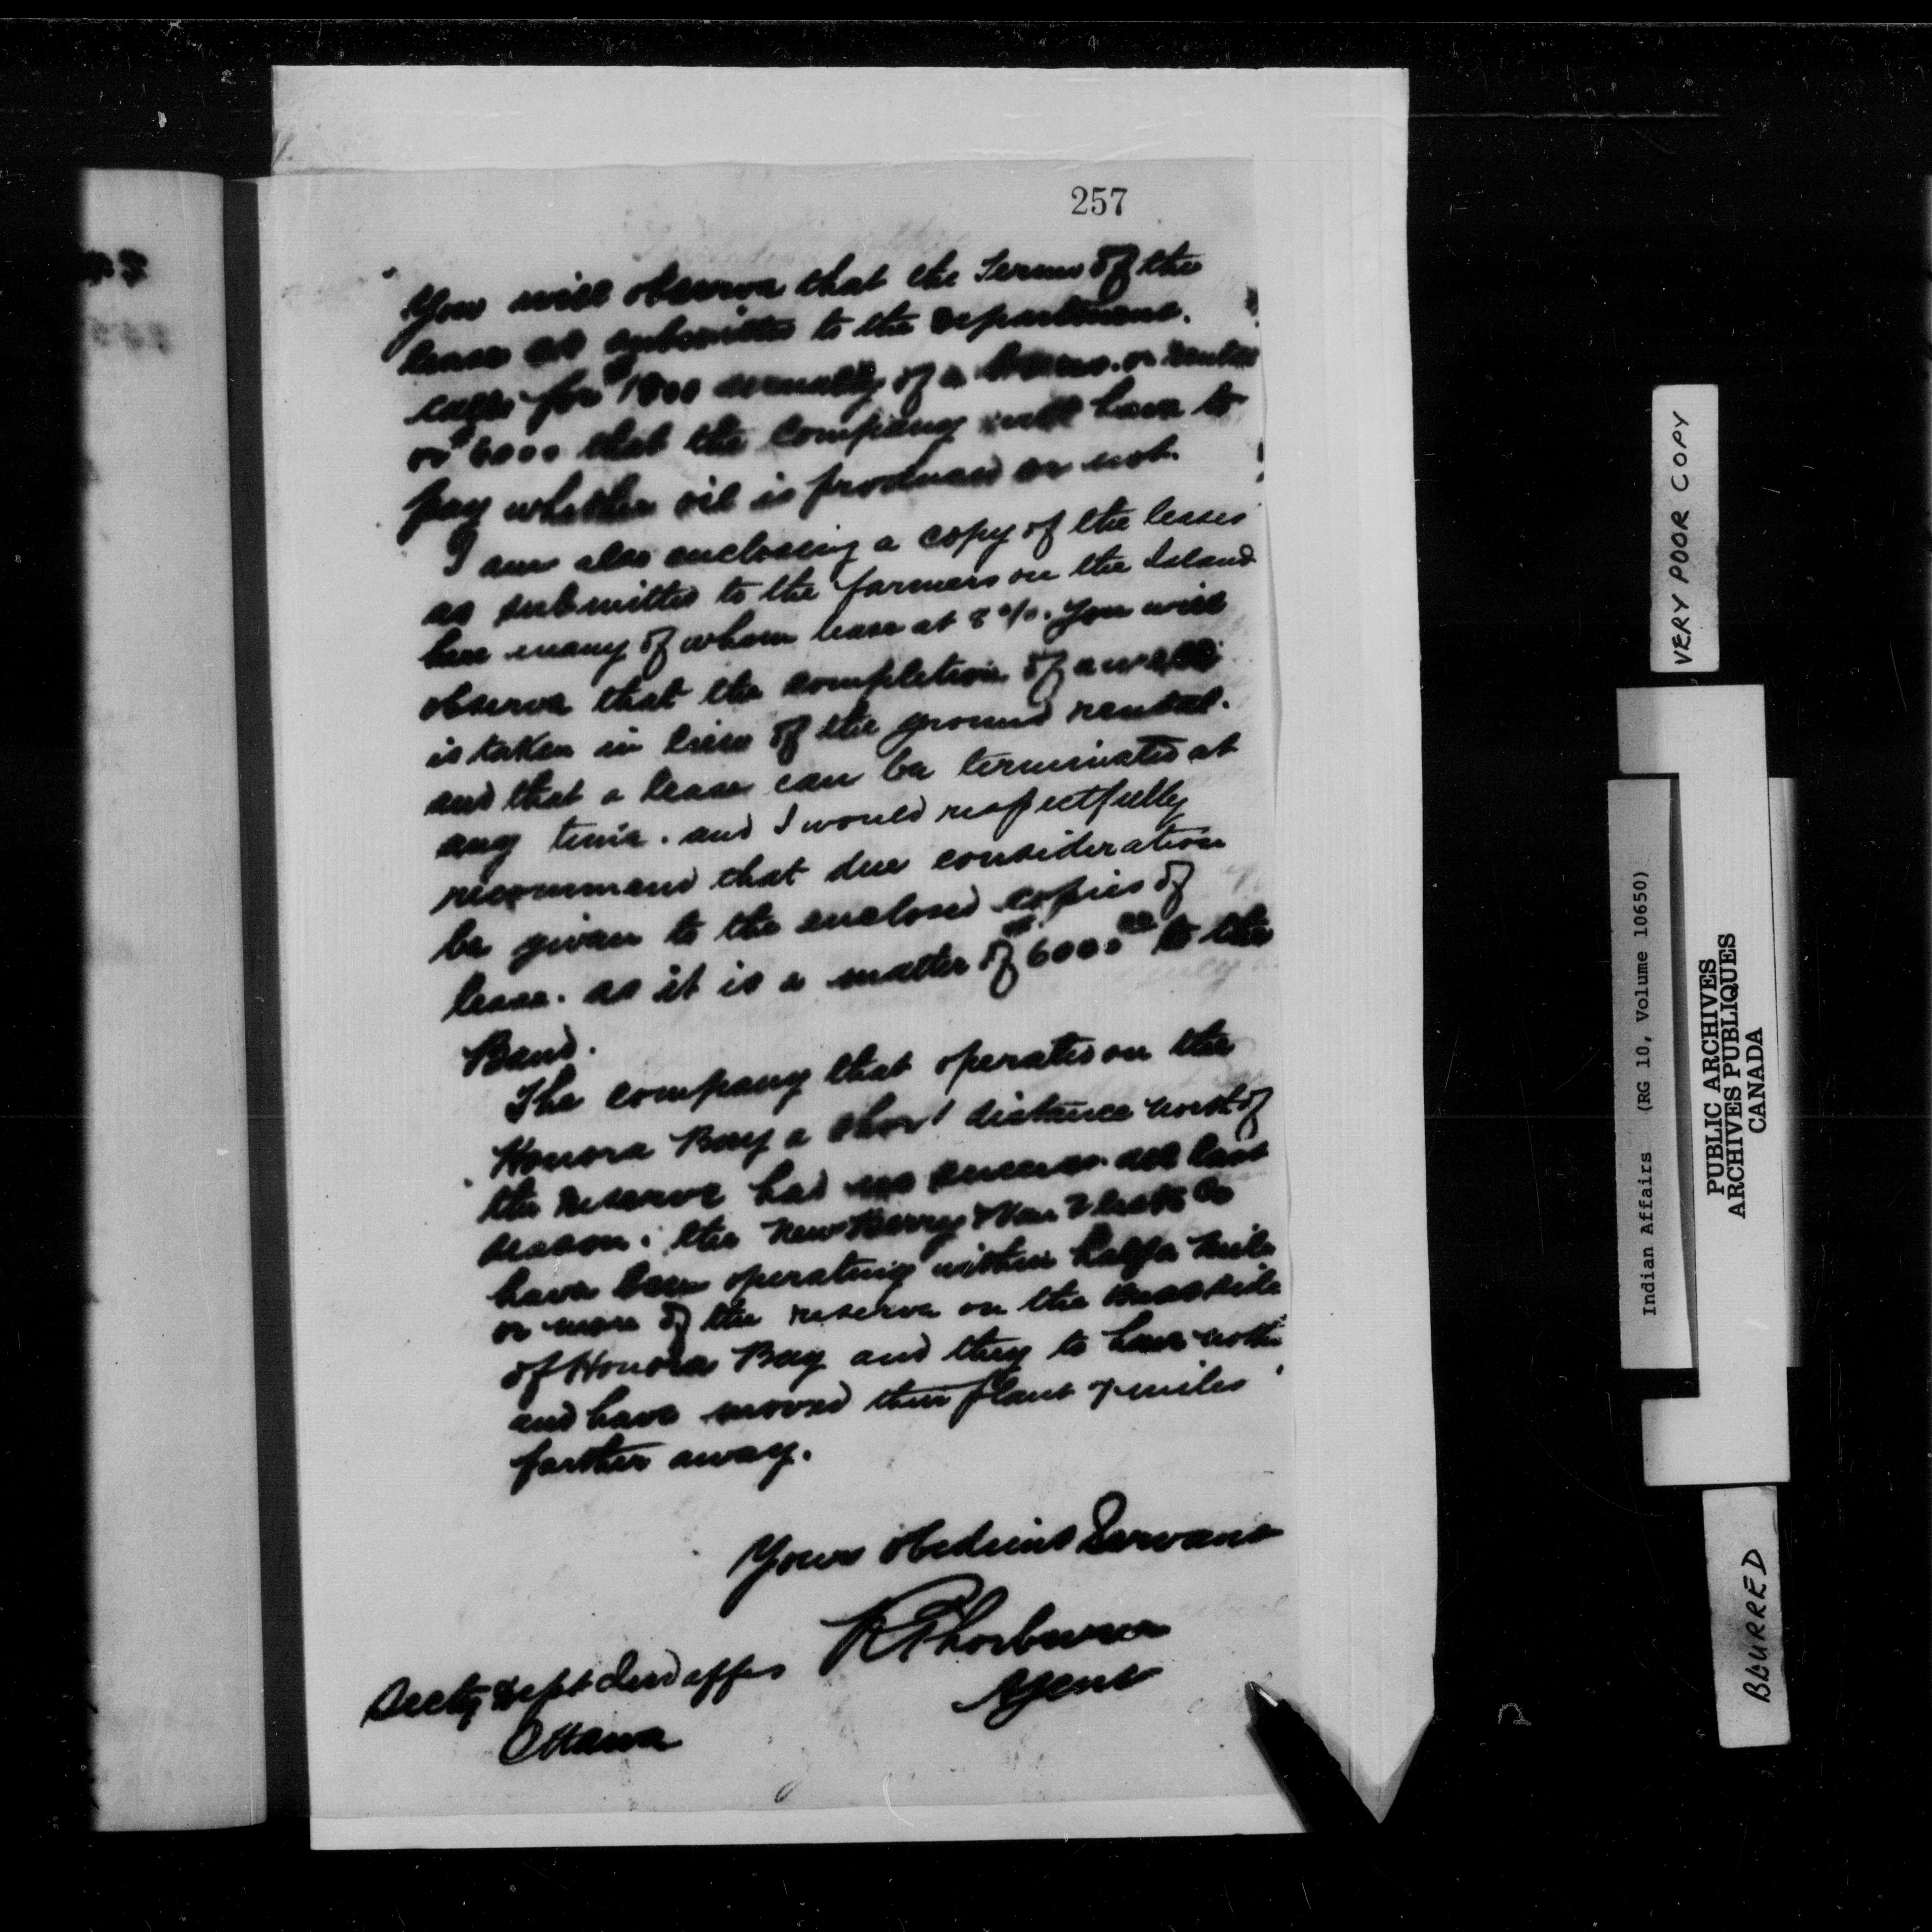 257
You will observe that the Terms of the
lease as submitted to the Department.
calls for $1800 annually of a bonus. or rental
or $6000 that the Company will have to
pay whether oil is produced or not.
I am also enclosing a copy of the leases
as submitted to the farmers on the Island
here many of whom lease at 8%. You will
observe that the completion of a well
is taken in lieu of the ground rental.
and that a lease can be terminated at
any time. and I would respectfully
recommend that due consideration
be given to the enclosed copies of
lease. as it is a matter of $6000 00 to the
Band.
The company that operates on the
Honora Bay a short distance north of
the reserve had no success all last
season. the New
have been operating within half a mile
or more of the reserve on the side
of Honora Bay and they to have
and have moved their plant 7 miles
farther away.
Your obedient Servant
R Thorburn
Agent
Secty Dept Ind Affrs
Ottawa
VERY POOR COPY
Indian Affairs (RG 10, Volume 10650)
PUBLIC ARCHIVES
ARCHIVES PUBLIQUES
CANADA
BLURRED